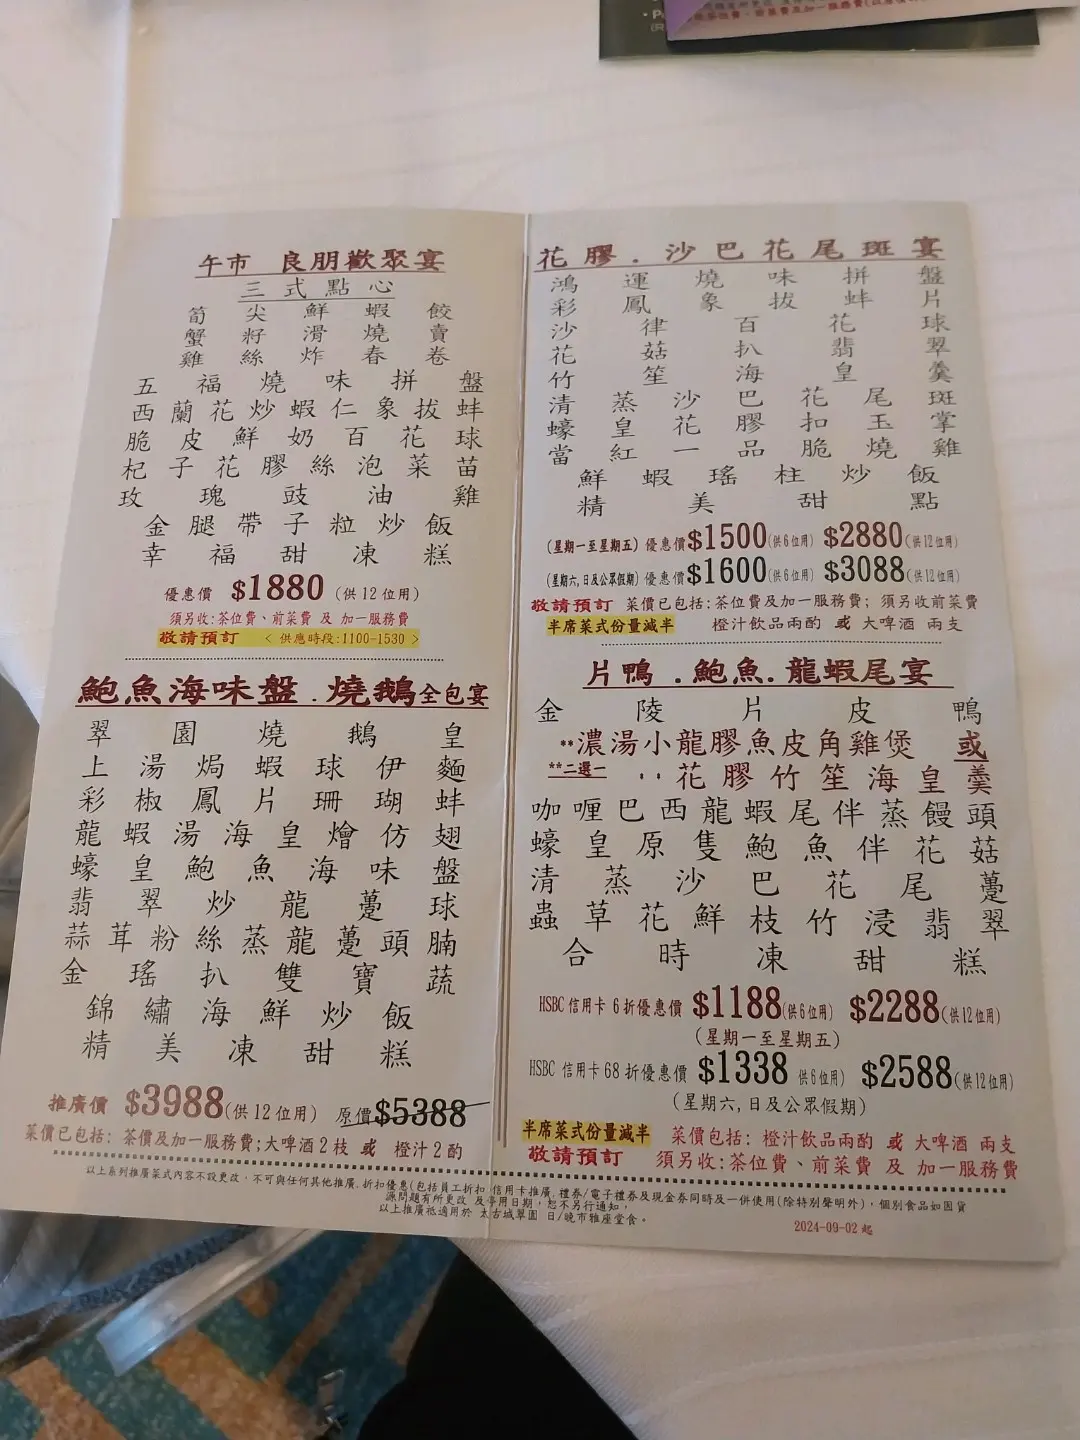 午市 良朋歡聚宴
三式點心
筍尖鮮蝦餃
蟹籽滑燒賣
雞絲炸春卷
五福燒味拼盤
西蘭花炒蝦仁象拔蚌
脆皮鮮奶百花球
杞子花膠絲泡菜苗
玫瑰豉油雞
金腿帶子粒炒飯
幸福甜凍糕
優惠價 $1880 (供12位用)
須另收:茶位費、前菜費 及 加一服務費
敬請預訂 < 供應時段:1100-1530 >
鮑魚海味盤.燒鵝全包宴
翠園燒鵝皇
上湯焗蝦球伊麵
彩椒鳳片珊瑚蚌
龍蝦湯海皇燴仿翅
蠔皇鮑魚海味盤
翡翠炒龍躉球
蒜茸粉絲蒸龍躉頭腩
金瑤扒雙寶蔬
錦繡海鮮炒飯
精美凍甜糕
推廣價 $3988(供12位用) 原價$5388
菜價已包括: 茶價及加一服務費;大啤酒2枝 或 橙汁2酌
花膠.沙巴花尾斑宴
鴻運燒味拼盤
彩鳳象拔蚌片
沙律百花球
花菇扒翡翠
竹笙海皇羹
清蒸沙巴花尾斑
蠔皇花膠扣玉掌
當紅一品脆燒雞
鮮蝦瑤柱炒飯
精美甜點
(星期一至星期五) 優惠價$1500(供6位用) $2880(供12位用)
(星期六,日及公眾假期) 優惠價$1600(供6位用) $3088(供12位用)
敬請預訂 菜價已包括:茶位費及加一服務費; 須另收前菜費
半席菜式份量減半 橙汁飲品兩酌 或 大啤酒 兩支
片鴨.鮑魚.龍蝦尾宴
金陵片皮鴨
**濃湯小龍膠魚皮角雞煲 或
**二選一 ..花膠竹笙海皇羹
咖喱巴西龍蝦尾伴蒸饅頭
蠔皇原隻鮑魚伴花菇
清蒸沙巴花尾躉
蟲草花鮮枝竹浸翡翠
合時凍甜糕
HSBC 信用卡 6折優惠價 $1188(供6位用) $2288(供12位用)
(星期一至星期五)
HSBC 信用卡 68折優惠價 $1338 供6位用) $2588(供12位用)
(星期六,日及公眾假期)
半席菜式份量減半 菜價包括: 橙汁飲品兩酌 或 大啤酒 兩支
敬請預訂 須另收:茶位費、前菜費 及 加一服務費
以上系列推廣菜式內容不設更改, 不可與任何其他推廣,折扣優惠(包括員工折扣,信用卡推廣,禮券/電子禮券及現金券同時及一併使用(除特別聲明外), 個別食品如因貨
源問題有所更改 及停用日期, 恕不另行通知,
以上推廣祗適用於 太古城翠園 日/晚市雅座堂食。
2024-09-02 起